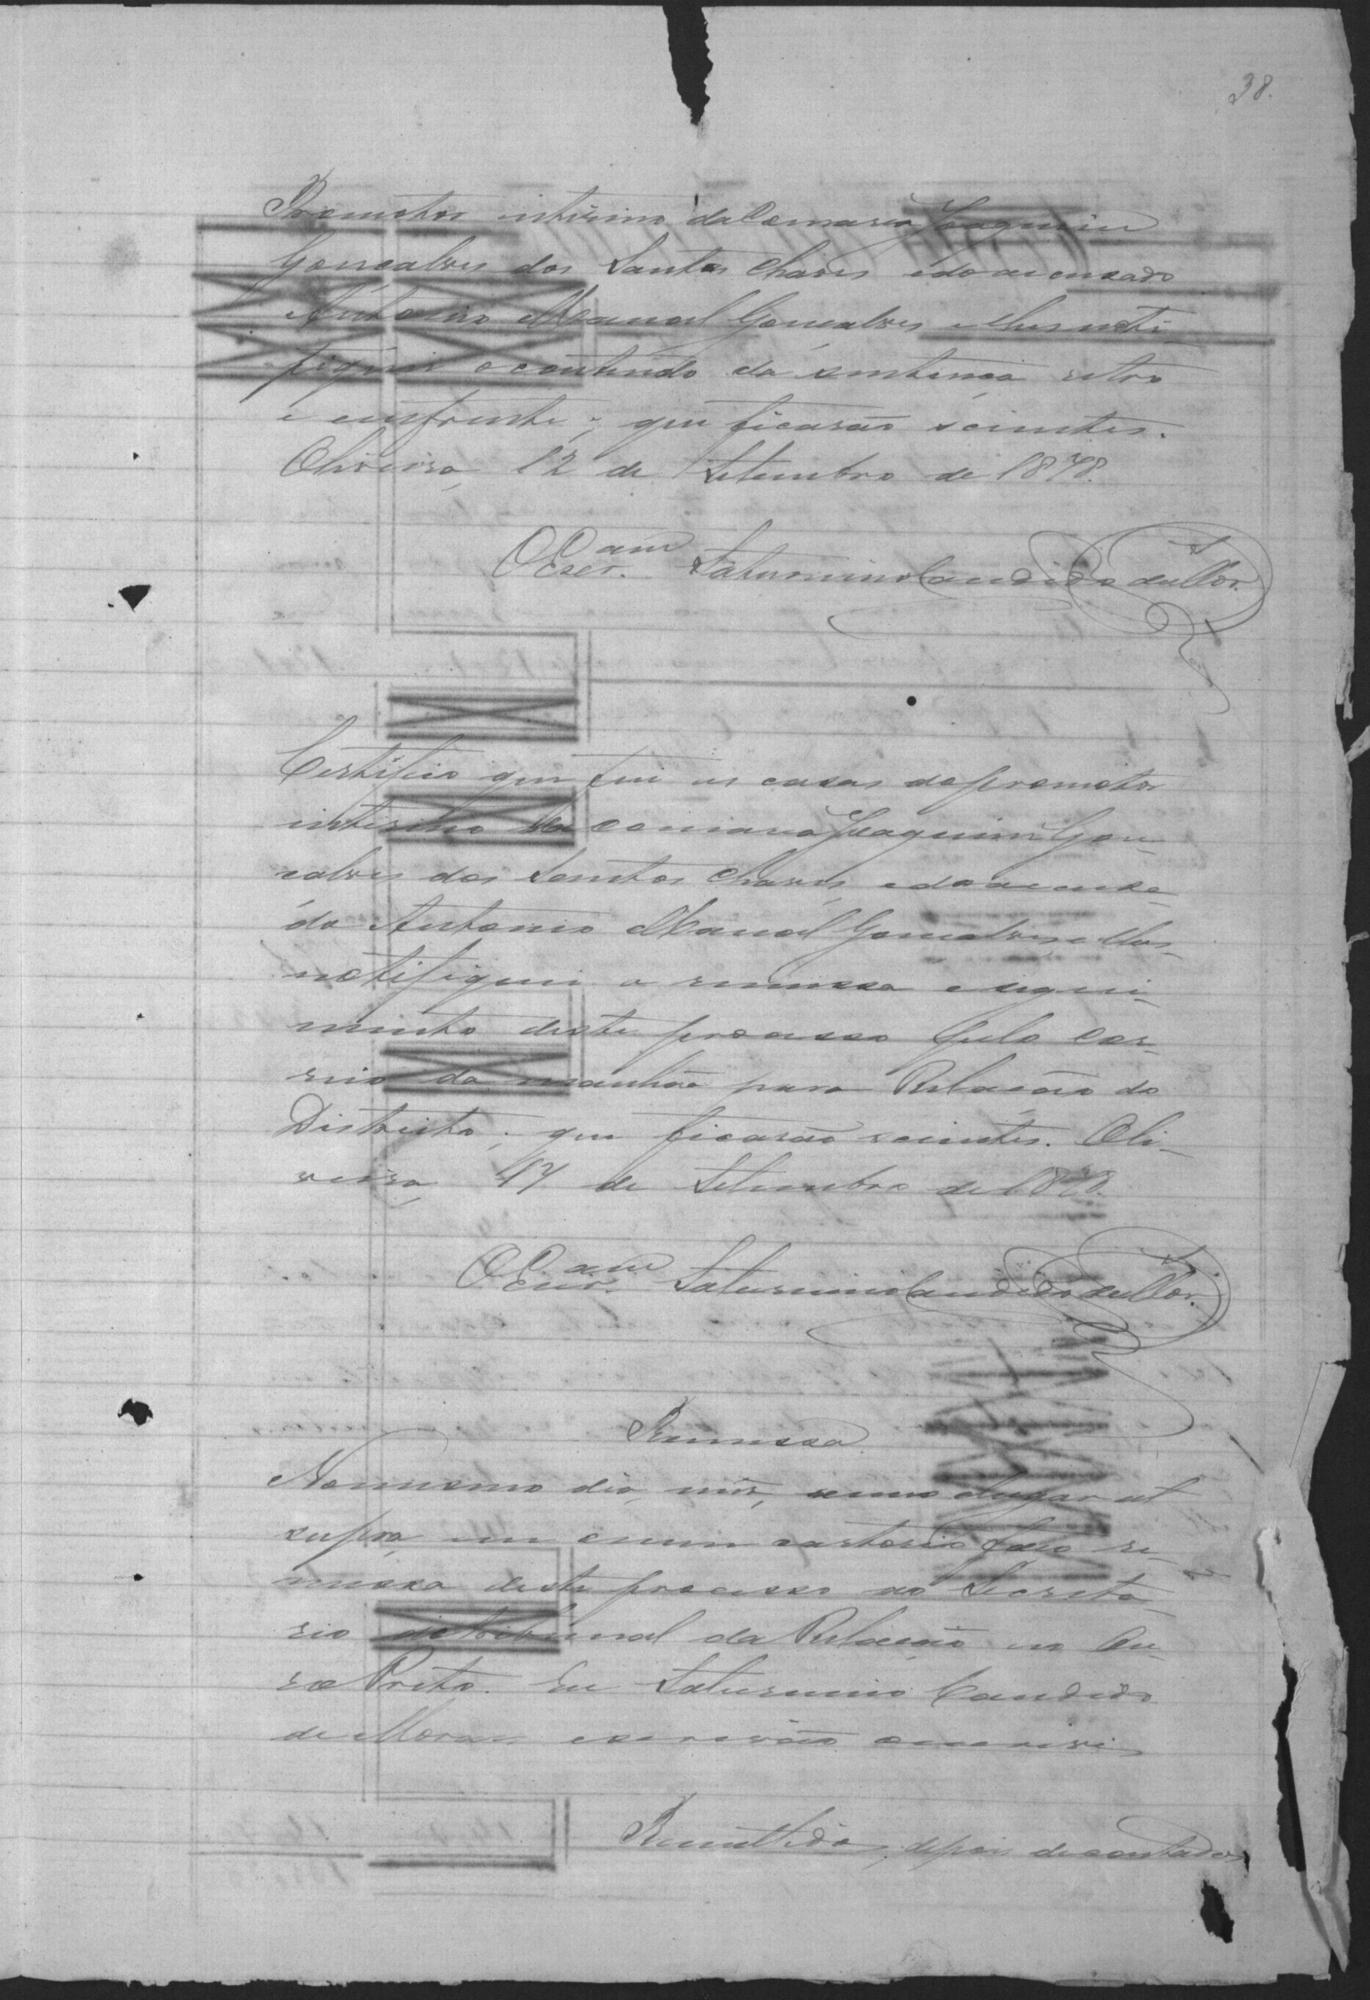 38.
Promotor interino da Comarca Joaquim
Gonçalves dos Santos Chaves e do accusado
Antonio Manoel Gonçalves e lhes noti-
fiquei o contendo da sentença retro
e emfrente; que ficarão scientes.
Oliveira, 12 de Setembro de 1878.
O Escr.am Saturnino Candido de Mor.
Certifico que fui as casas do promotor
interino da comarca Joaquim Gon-
calves dos Santos Chaves, e do accusa-
do Antonio Manoel Gonçalves e lhes
notifiquei a remessa e segui-
mento deste processo pelo Cor-
reio da manhãa para Relação do
Districto; que ficarão scientes. Oli-
veira, 17 de Setembro de 1878.
O Escr.am Saturnino Candido de Mor.
Remessa
No mesmo dia, mês, anno e lugar ut
supra, em o meu cartorio faço re-
messa deste processo ao Secreta-
rio do tribunal da Relação no Ou-
ro Preto. Eu Saturnino Candido
de Moraes escrivão o escrevi
Remettidos, depois de contados